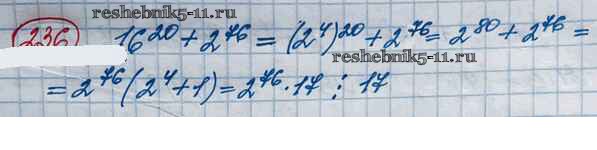 reshebnik5-11.ru
236 16²⁰ + 2⁷⁶ = (2⁴)²⁰ + 2⁷⁶ = 2⁸⁰ + 2⁷⁶ =
reshebnik5-11.ru
= 2⁷⁶ (2⁴ + 1) = 2⁷⁶ · 17 ⋮ 17